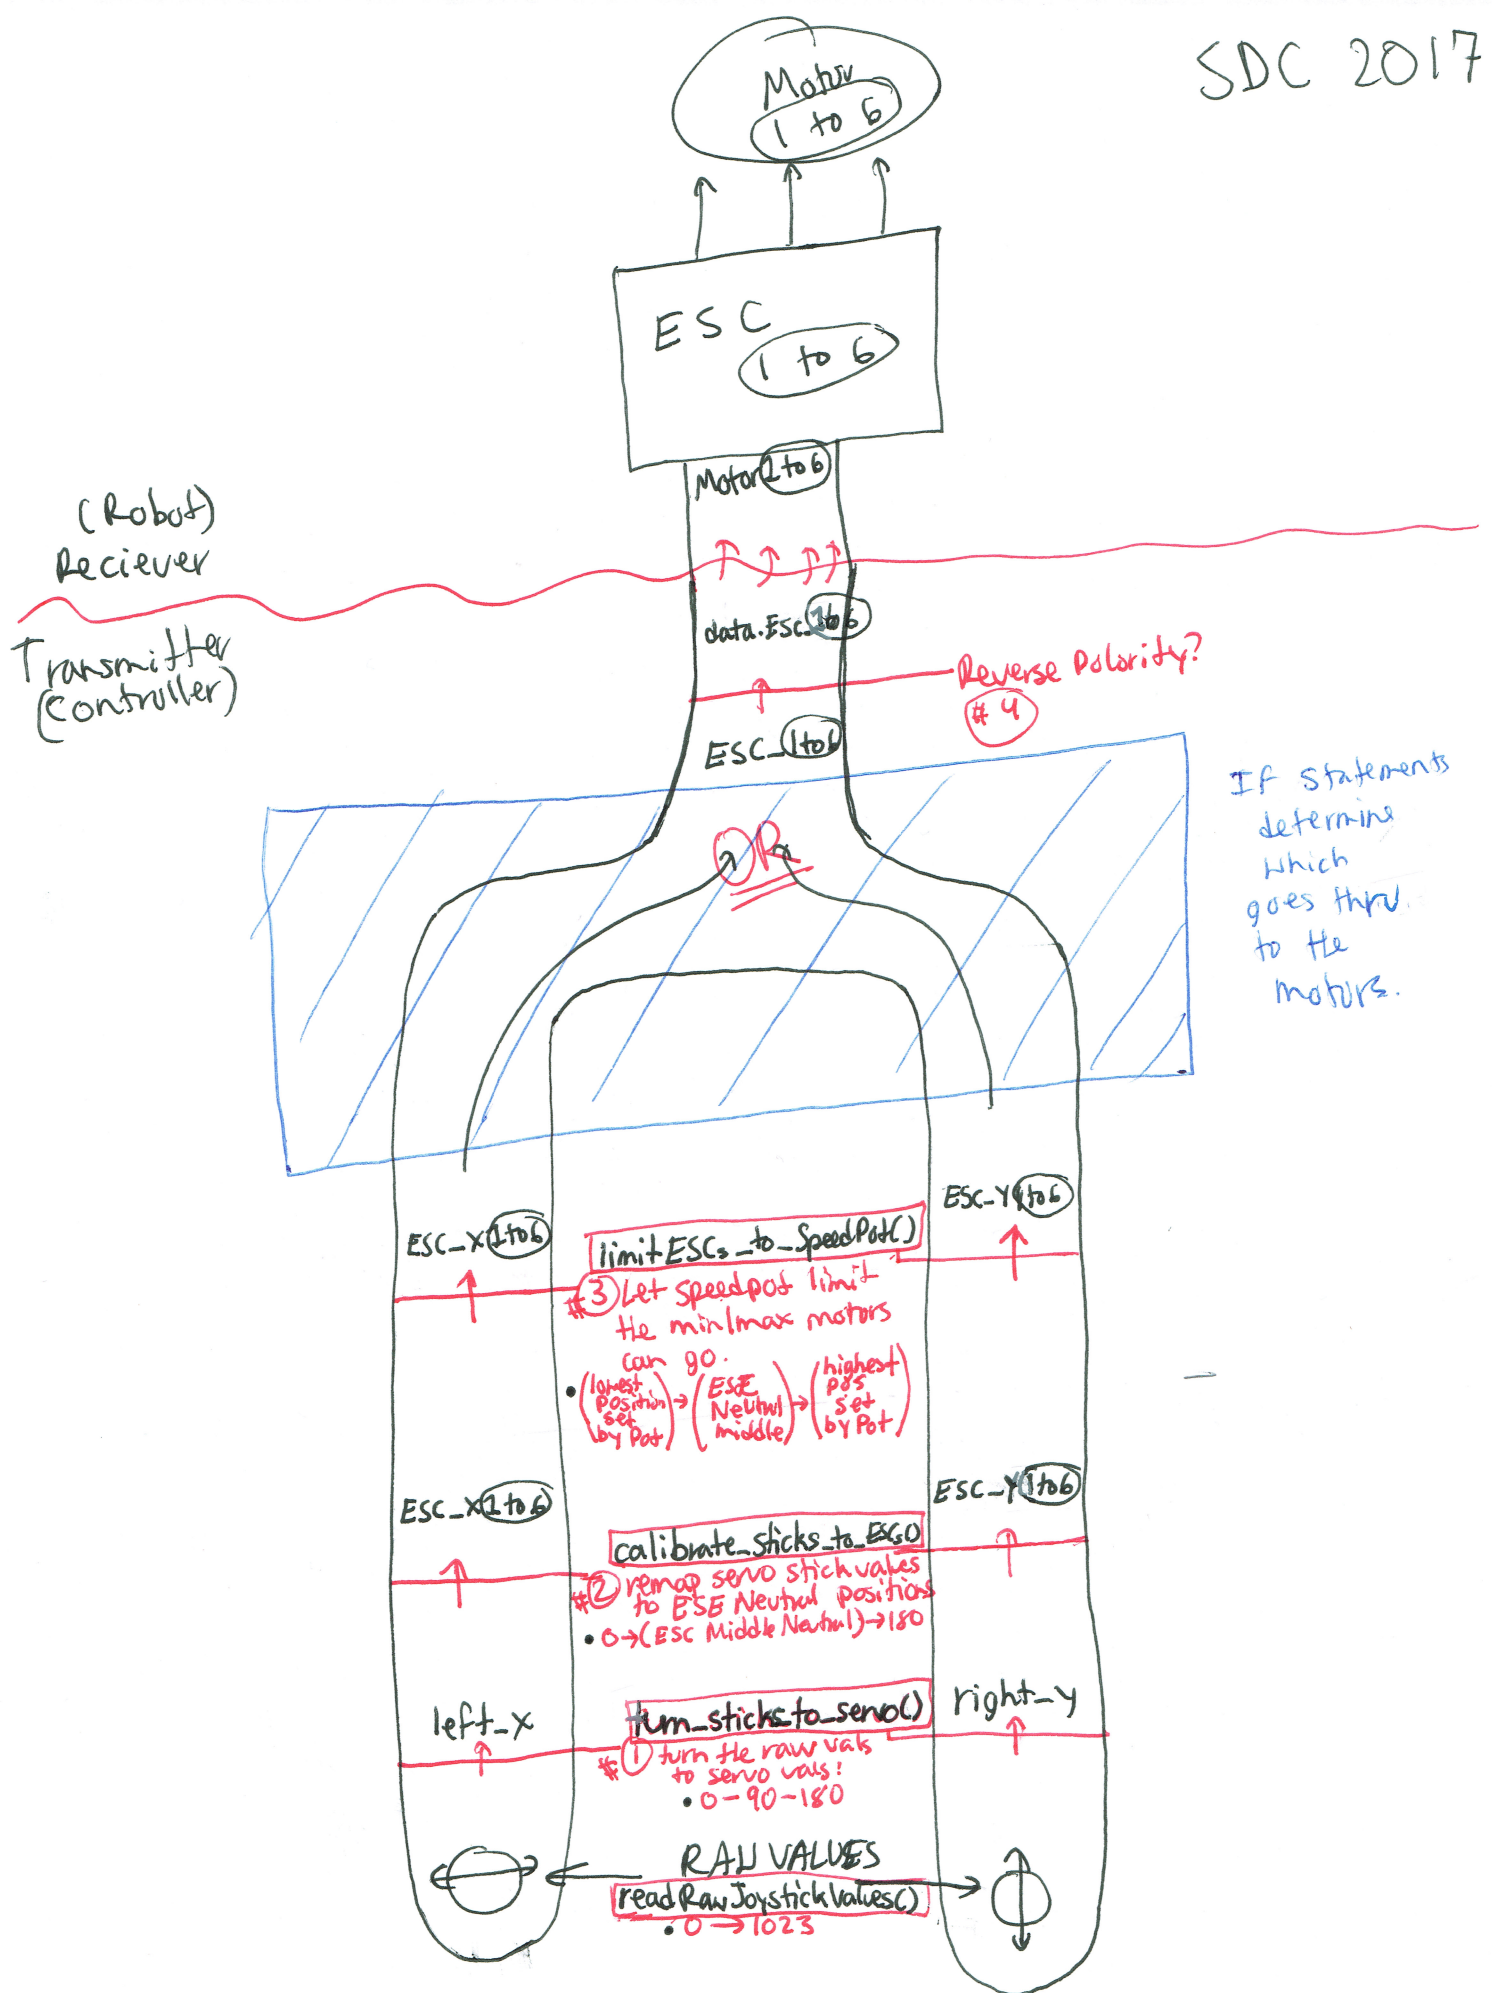 SDC 2017
Motor
1 to 6
ESC
1 to 6
Motor 1 to 6
(Robot)
Reciever
Transmitter
(Controller)
data.ESC_1to6
Reverse Polarity?
#4
ESC_1to6
OR
If statements
determine
which
goes thru
to the
motors.
ESC_Y1to6
ESC_X1to6
limitESCs_to_SpeedPot()
#3 Let speedpot limit
the min/max motors
can go.
• (lowest position set by Pot) → (ESE Neutral middle) → (highest pos set by Pot)
ESC_X1to6
ESC_Y1to6
calibrate_sticks_to_ESCs()
#2 remap servo stick values
to ESE Neutral positions
• 0→(ESC Middle Neutral)→180
left_x
right_y
turn_sticks_to_servo()
#1 turn the raw vals
to servo vals!
• 0-90-180
RAW VALUES
readRawJoystickValues()
• 0→1023